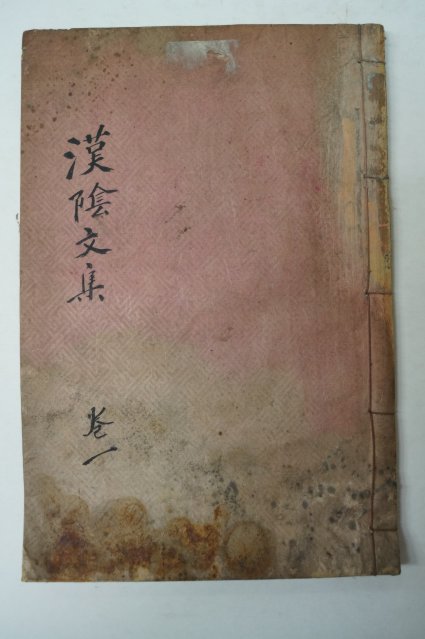 漢陰文集
卷一